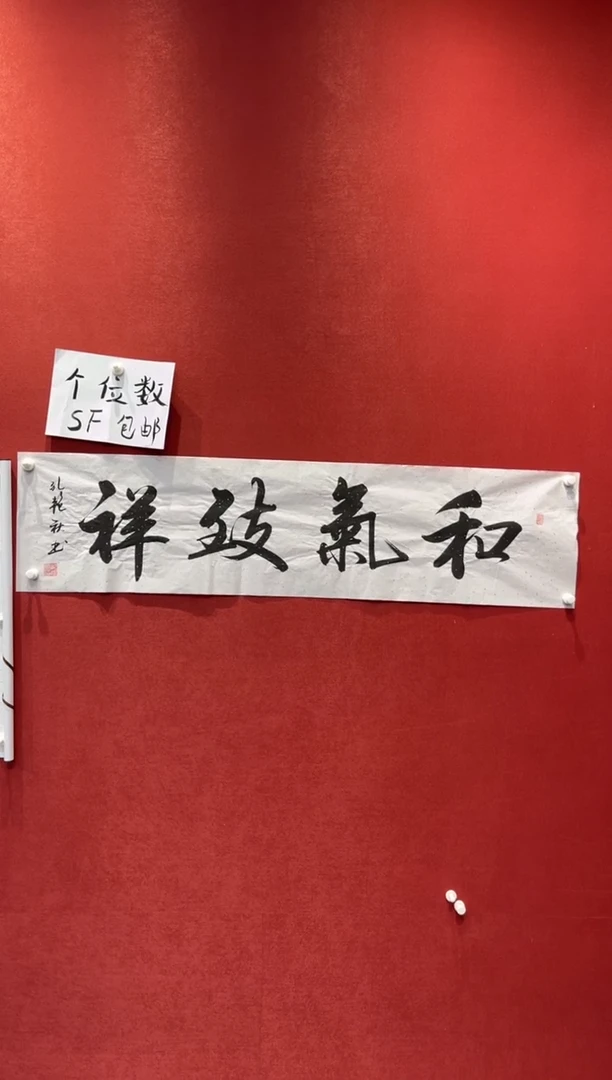 个位数
SF 包邮
和氣致祥
孔艳秋书